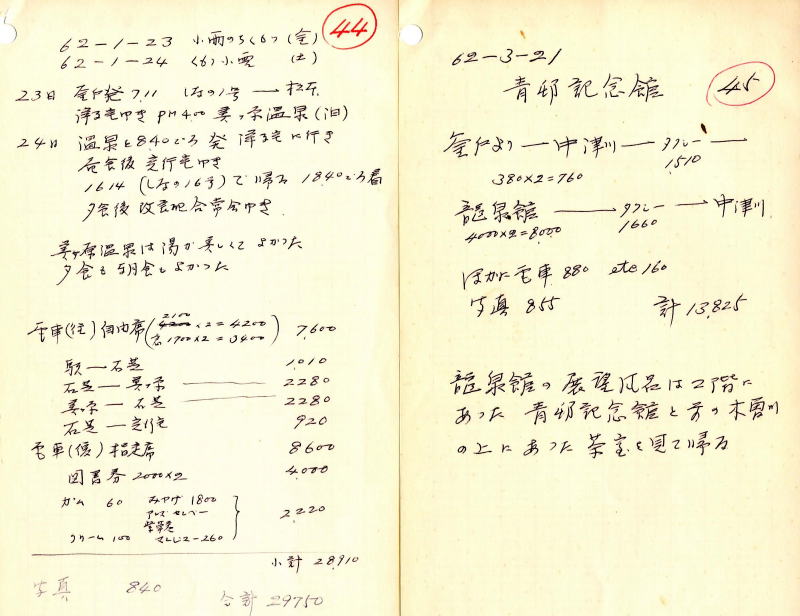 44
62-1-23 小雨のちくもり (金)
62-1-24 くもり小雪 (土)
23日 釜戸発 7.11 しなの1号 — 松本
澤宅ゆき PM 4.00 美ヶ原温泉(泊)
24日 温泉を8.40ごろ発 澤宅に行き
昼食後 ゆき
16.14 (しなの16号) で帰る 18.40ごろ着
夕食後 ゆき
美ヶ原温泉は湯が美しくてよかった
夕食も朝食もよかった
電車(往) 自由席 (2100 4200 ×2=4200 7,600
1700×2=3400)
駅—石芝 1,010
石芝—美ヶ原 2280
美ヶ原—石芝 2280
石芝— 920
電車(復) 指定席 8600
図書券 2000×2 4,000
ガム 60 みやげ 1800
2,220
クリーム 100 260
小計 28,910
写真 840 合計 29750
45
62-3-21
青邨記念館
釜戸より—中津川—タクシー—
1,510
380×2=760
龍泉館—タクシー—中津川
4000×2=8,000 1660
ほかに電車 880 etc 160
写真 855 計 13,825
龍泉館の展望風呂は2階に
あった 青邨記念館とその木曽川
の上にあった茶室を見て帰る